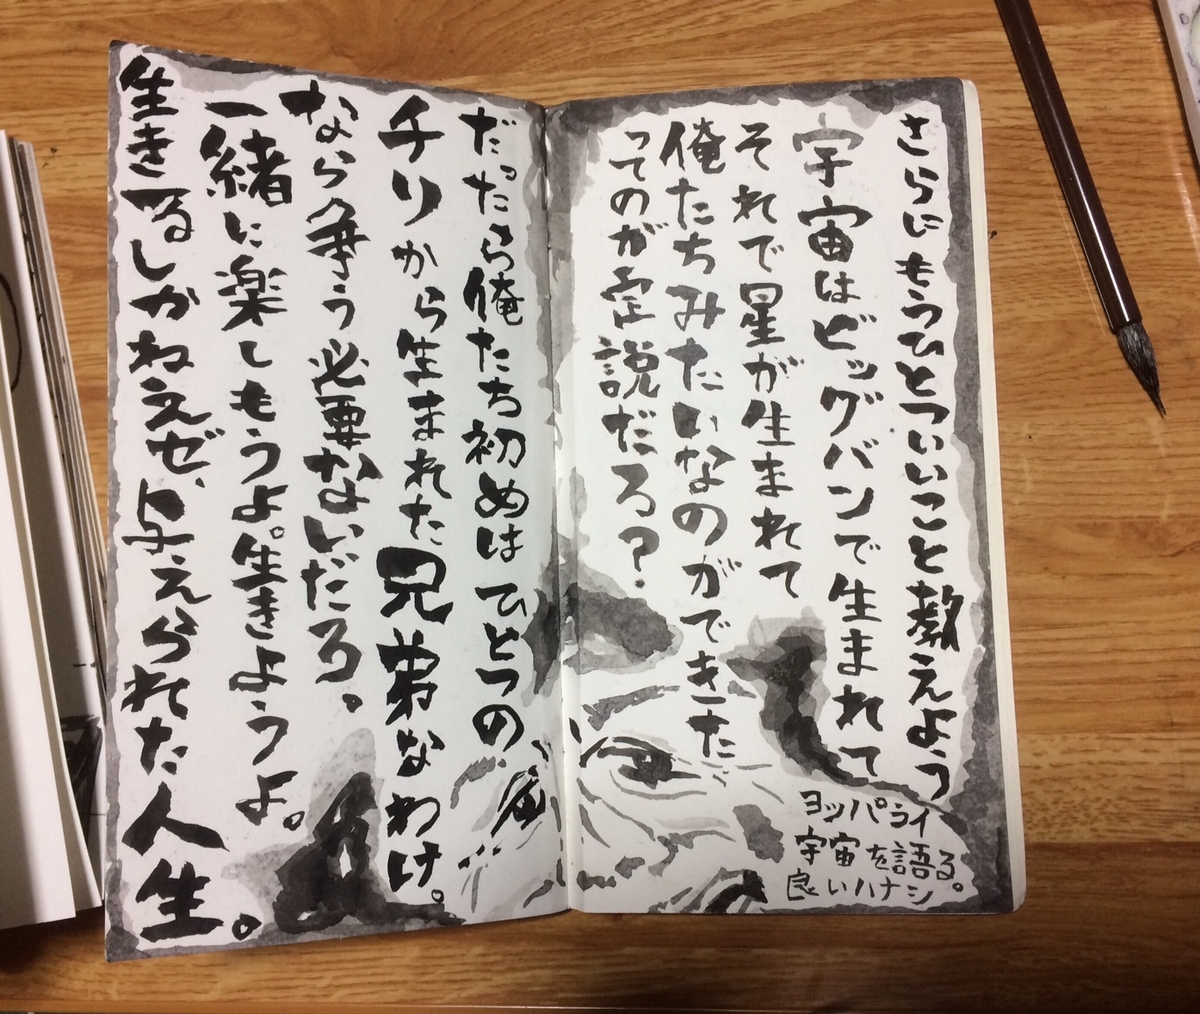 さらにもうひとついいこと教えよう
宇宙はビッグバンで生まれて
それで星が生まれて
俺たちみたいなのができた
ってのが定説だろ?
だったら俺たち初めはひとつの
チリから生まれた兄弟なわけ。
なら争う必要なないだろ、
一緒に楽しもうよ。生きようよ。
生きるしかねえぜ、与えられた人生。
ヨッパライ
宇宙を語る。
良いハナシ